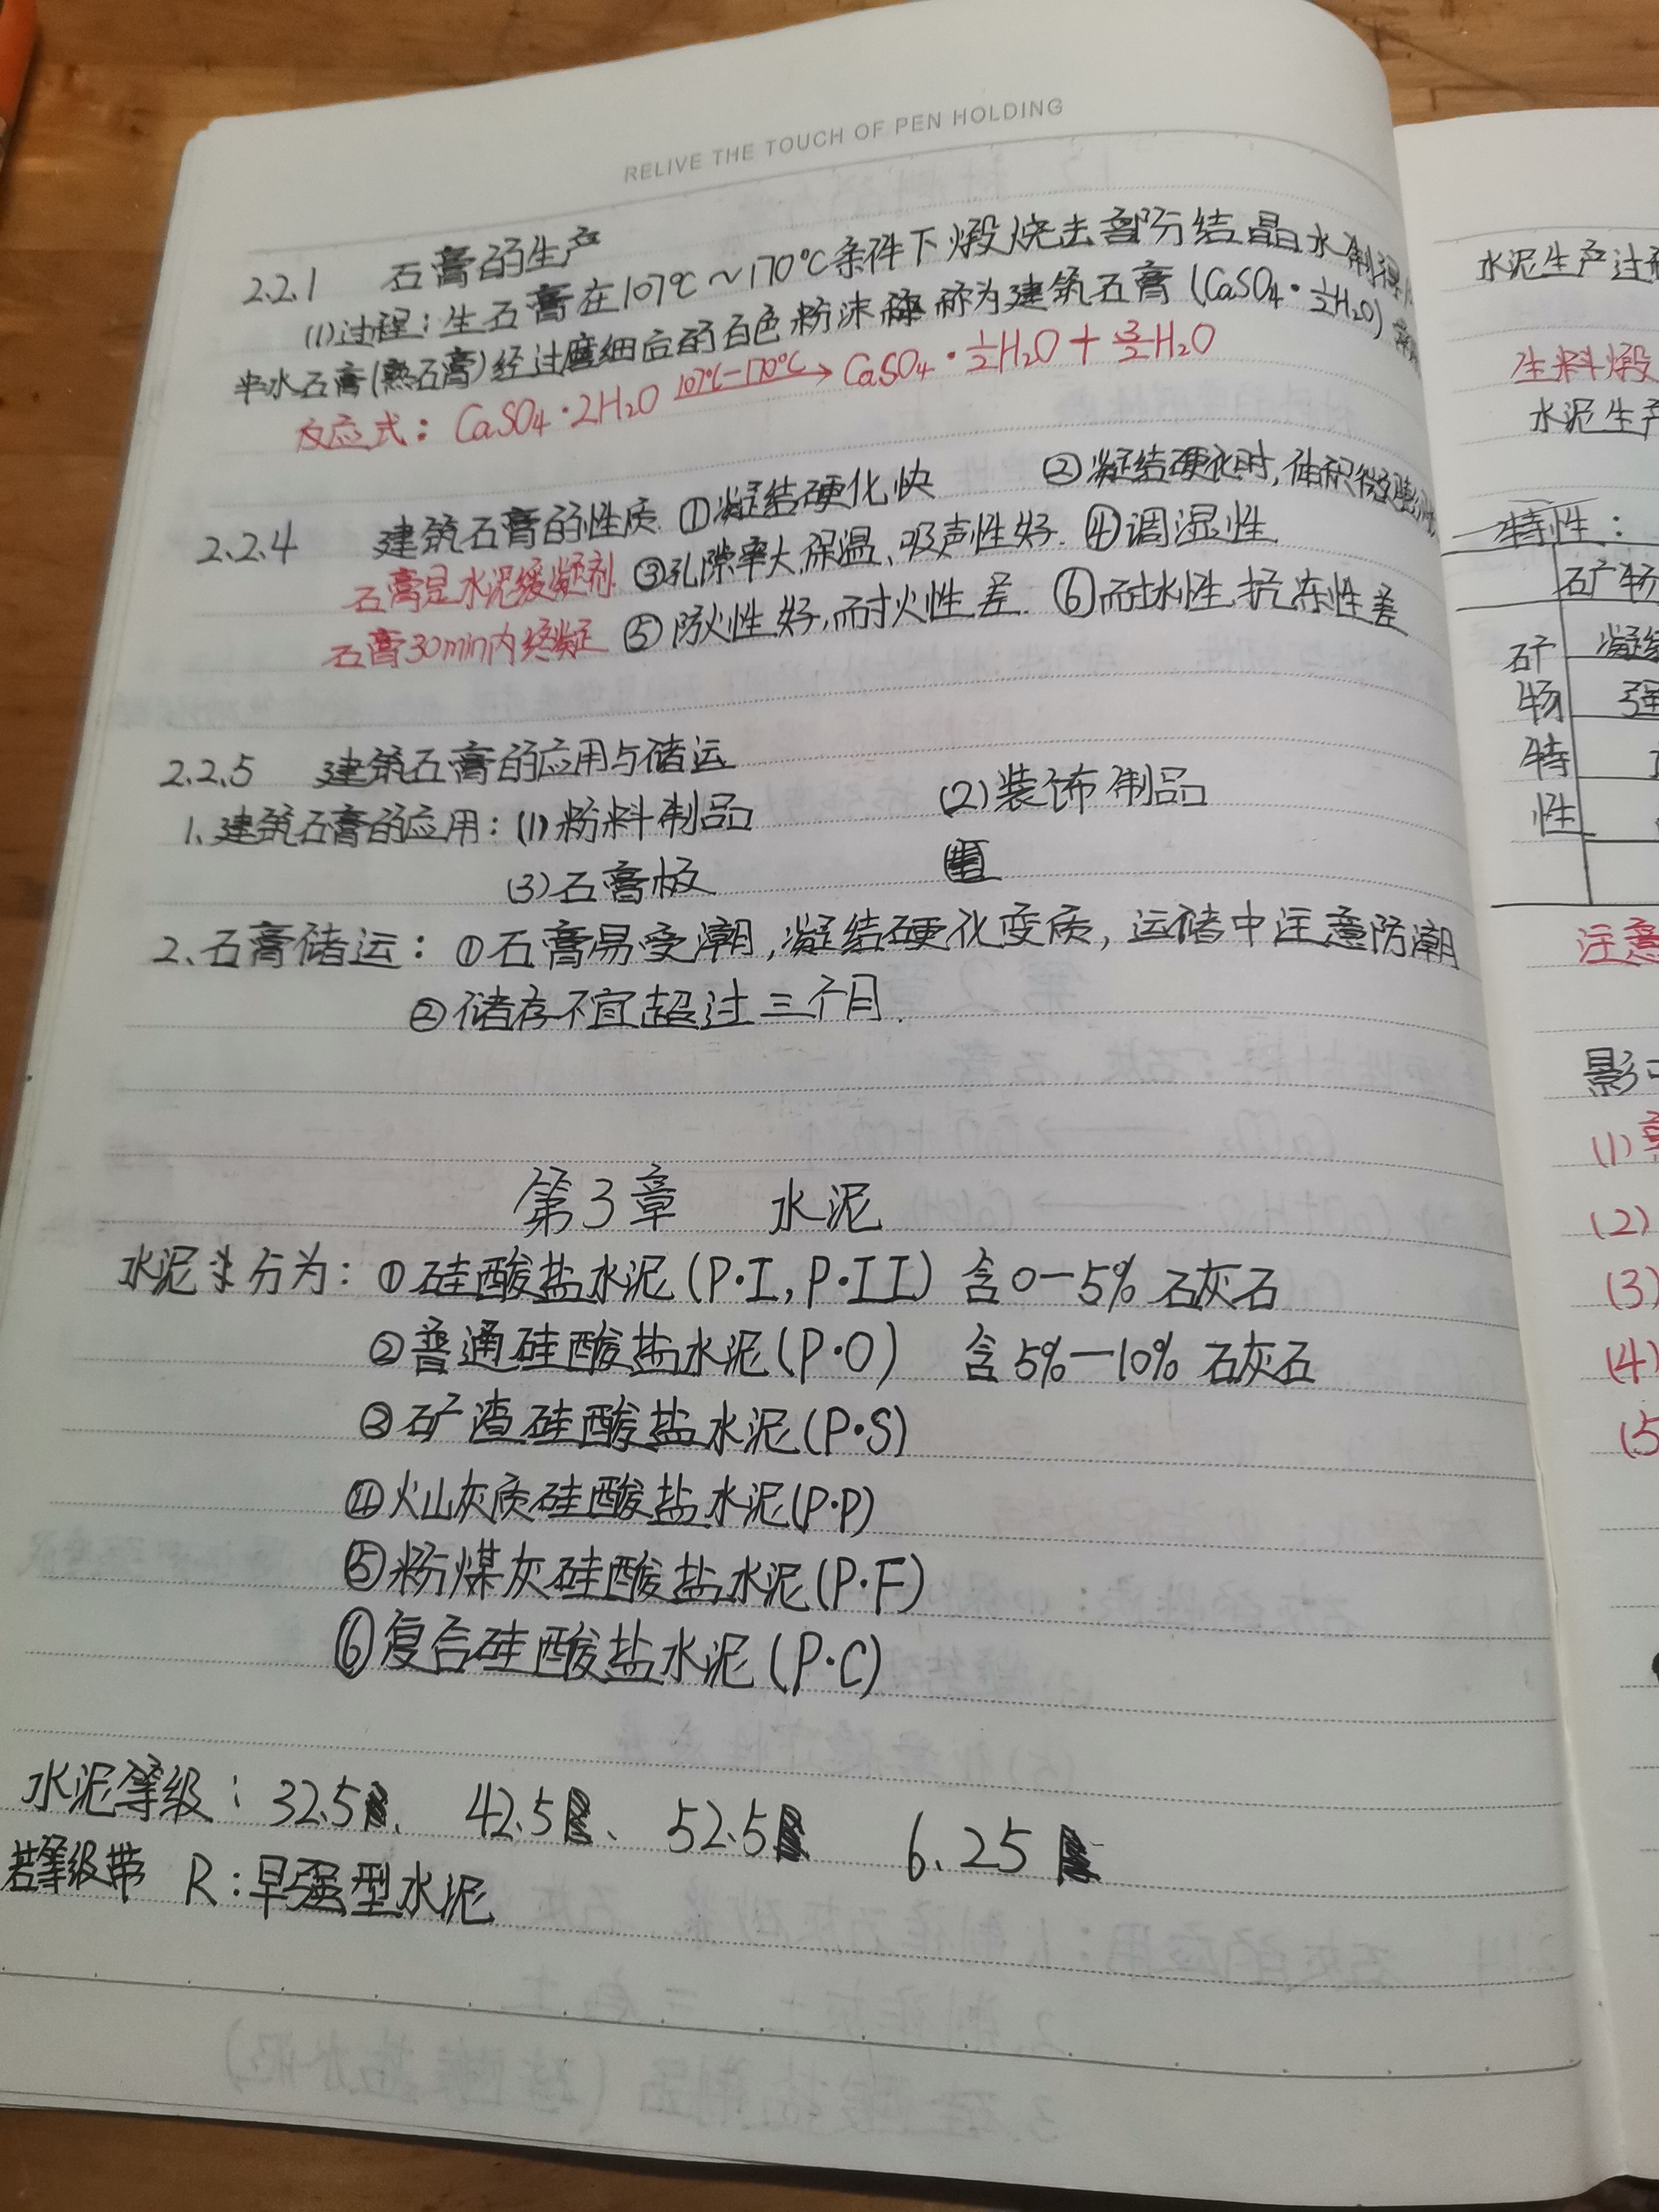 RELIVE THE TOUCH OF PEN HOLDING
2.2.1 石膏的生产
(1)过程:生石膏在107℃~170℃条件下煅烧去部分结晶水制得
半水石膏(熟石膏)经过磨细后的白色粉沫称为建筑石膏(CaSO₄·½H₂O)
反应式: CaSO₄·2H₂O 107℃-170℃→ CaSO₄·½H₂O + 3/2H₂O
2.2.4 建筑石膏的性质 ①凝结硬化快 ②凝结硬化时,体积微膨胀
石膏是水泥缓凝剂 ③孔隙率大,保温、吸声性好. ④调湿性
石膏30min内终凝 ⑤防火性好,而耐火性差. ⑥耐水性,抗冻性差
2.2.5 建筑石膏的应用与储运
1、建筑石膏的应用:(1)粉料制品 (2)装饰制品
(3)石膏板
2、石膏储运:①石膏易受潮,凝结硬化变质,运储中注意防潮
②储存不宜超过三个月.
第3章 水泥
水泥分为:①硅酸盐水泥(P·I,P·II) 含0—5% 石灰石
②普通硅酸盐水泥(P·O) 含5%—10% 石灰石
③矿渣硅酸盐水泥(P·S)
④火山灰质硅酸盐水泥(P·P)
⑤粉煤灰硅酸盐水泥(P·F)
⑥复合硅酸盐水泥(P·C)
水泥等级:32.5、 42.5、 52.5 6.25
若等级带 R:早强型水泥
水泥生产过程
生料煅
水泥生产
特性:
矿物
矿 凝结
物 强
特
性
注意
影
(1)
(2)
(3)
(4)
(5